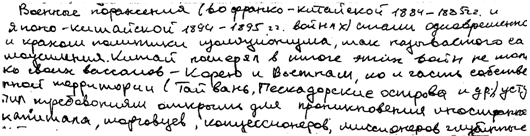 Военные поражения (во франко-китайской 1884-1885гг. и
японо-китайской 1894-1895 гг. войнах) стали одновременно
и крахом политики изоляционизма, так называемого са
моусиления. Китай потерял в итоге этих войн не толь
ко своих вассалов - Корею и Вьетнам, но и часть собстве
нной территории (Тайвань, Пескадорские острова и др) усту
пил требованиям открыть для проникновения иностранно
капитала, торговцев, концессионеров, миссионеров глубинн